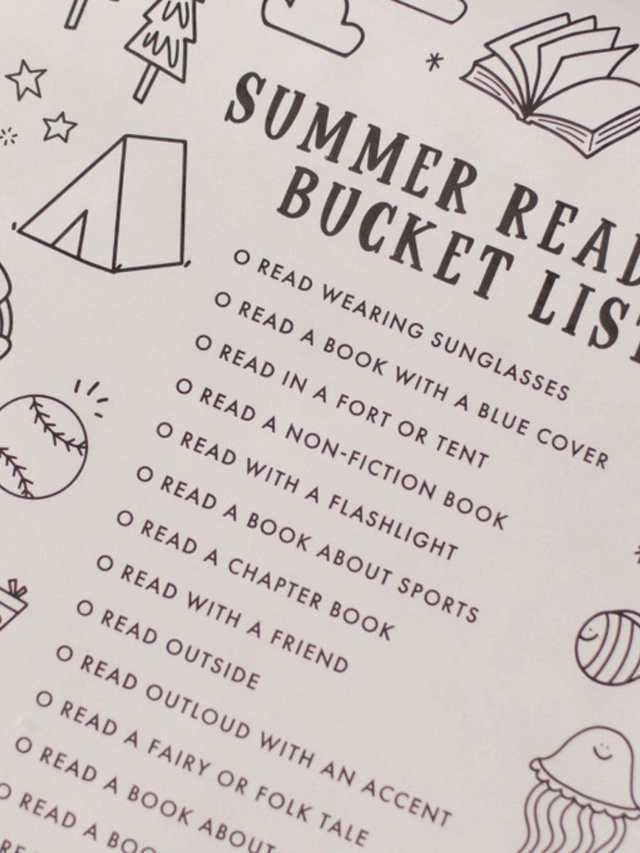 SUMMER READ
BUCKET LIST
O READ WEARING SUNGLASSES
O READ A BOOK WITH A BLUE COVER
O READ IN A FORT OR TENT
O READ A NON-FICTION BOOK
O READ WITH A FLASHLIGHT
O READ A BOOK ABOUT SPORTS
O READ A CHAPTER BOOK
O READ WITH A FRIEND
O READ OUTSIDE
O READ OUTLOUD WITH AN ACCENT
O READ A FAIRY OR FOLK TALE
O READ A BOOK ABOUT
O READ A BOO